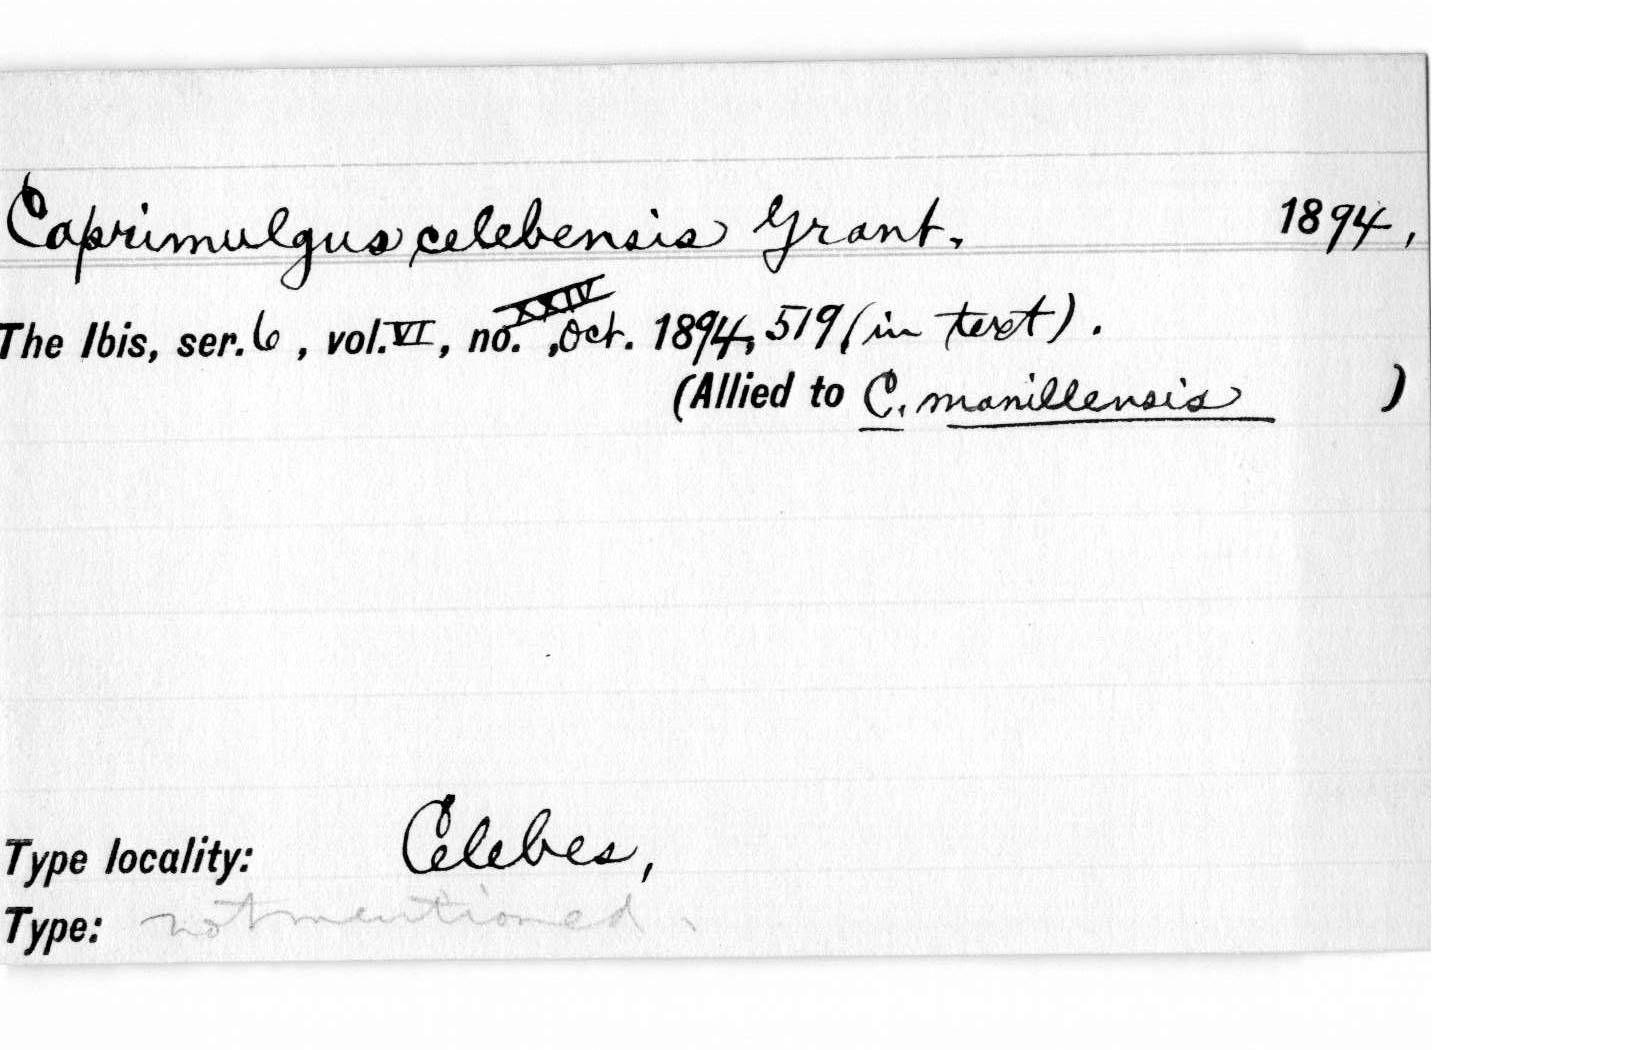 Caprimulgus celebensis Grant, 1894,
The Ibis, ser. 6, vol. VI, no. XXIV, Oct. 1894, 519 (in text).
(Allied to C. manillensis )
Type locality: Celebes,
Type: not mentioned.